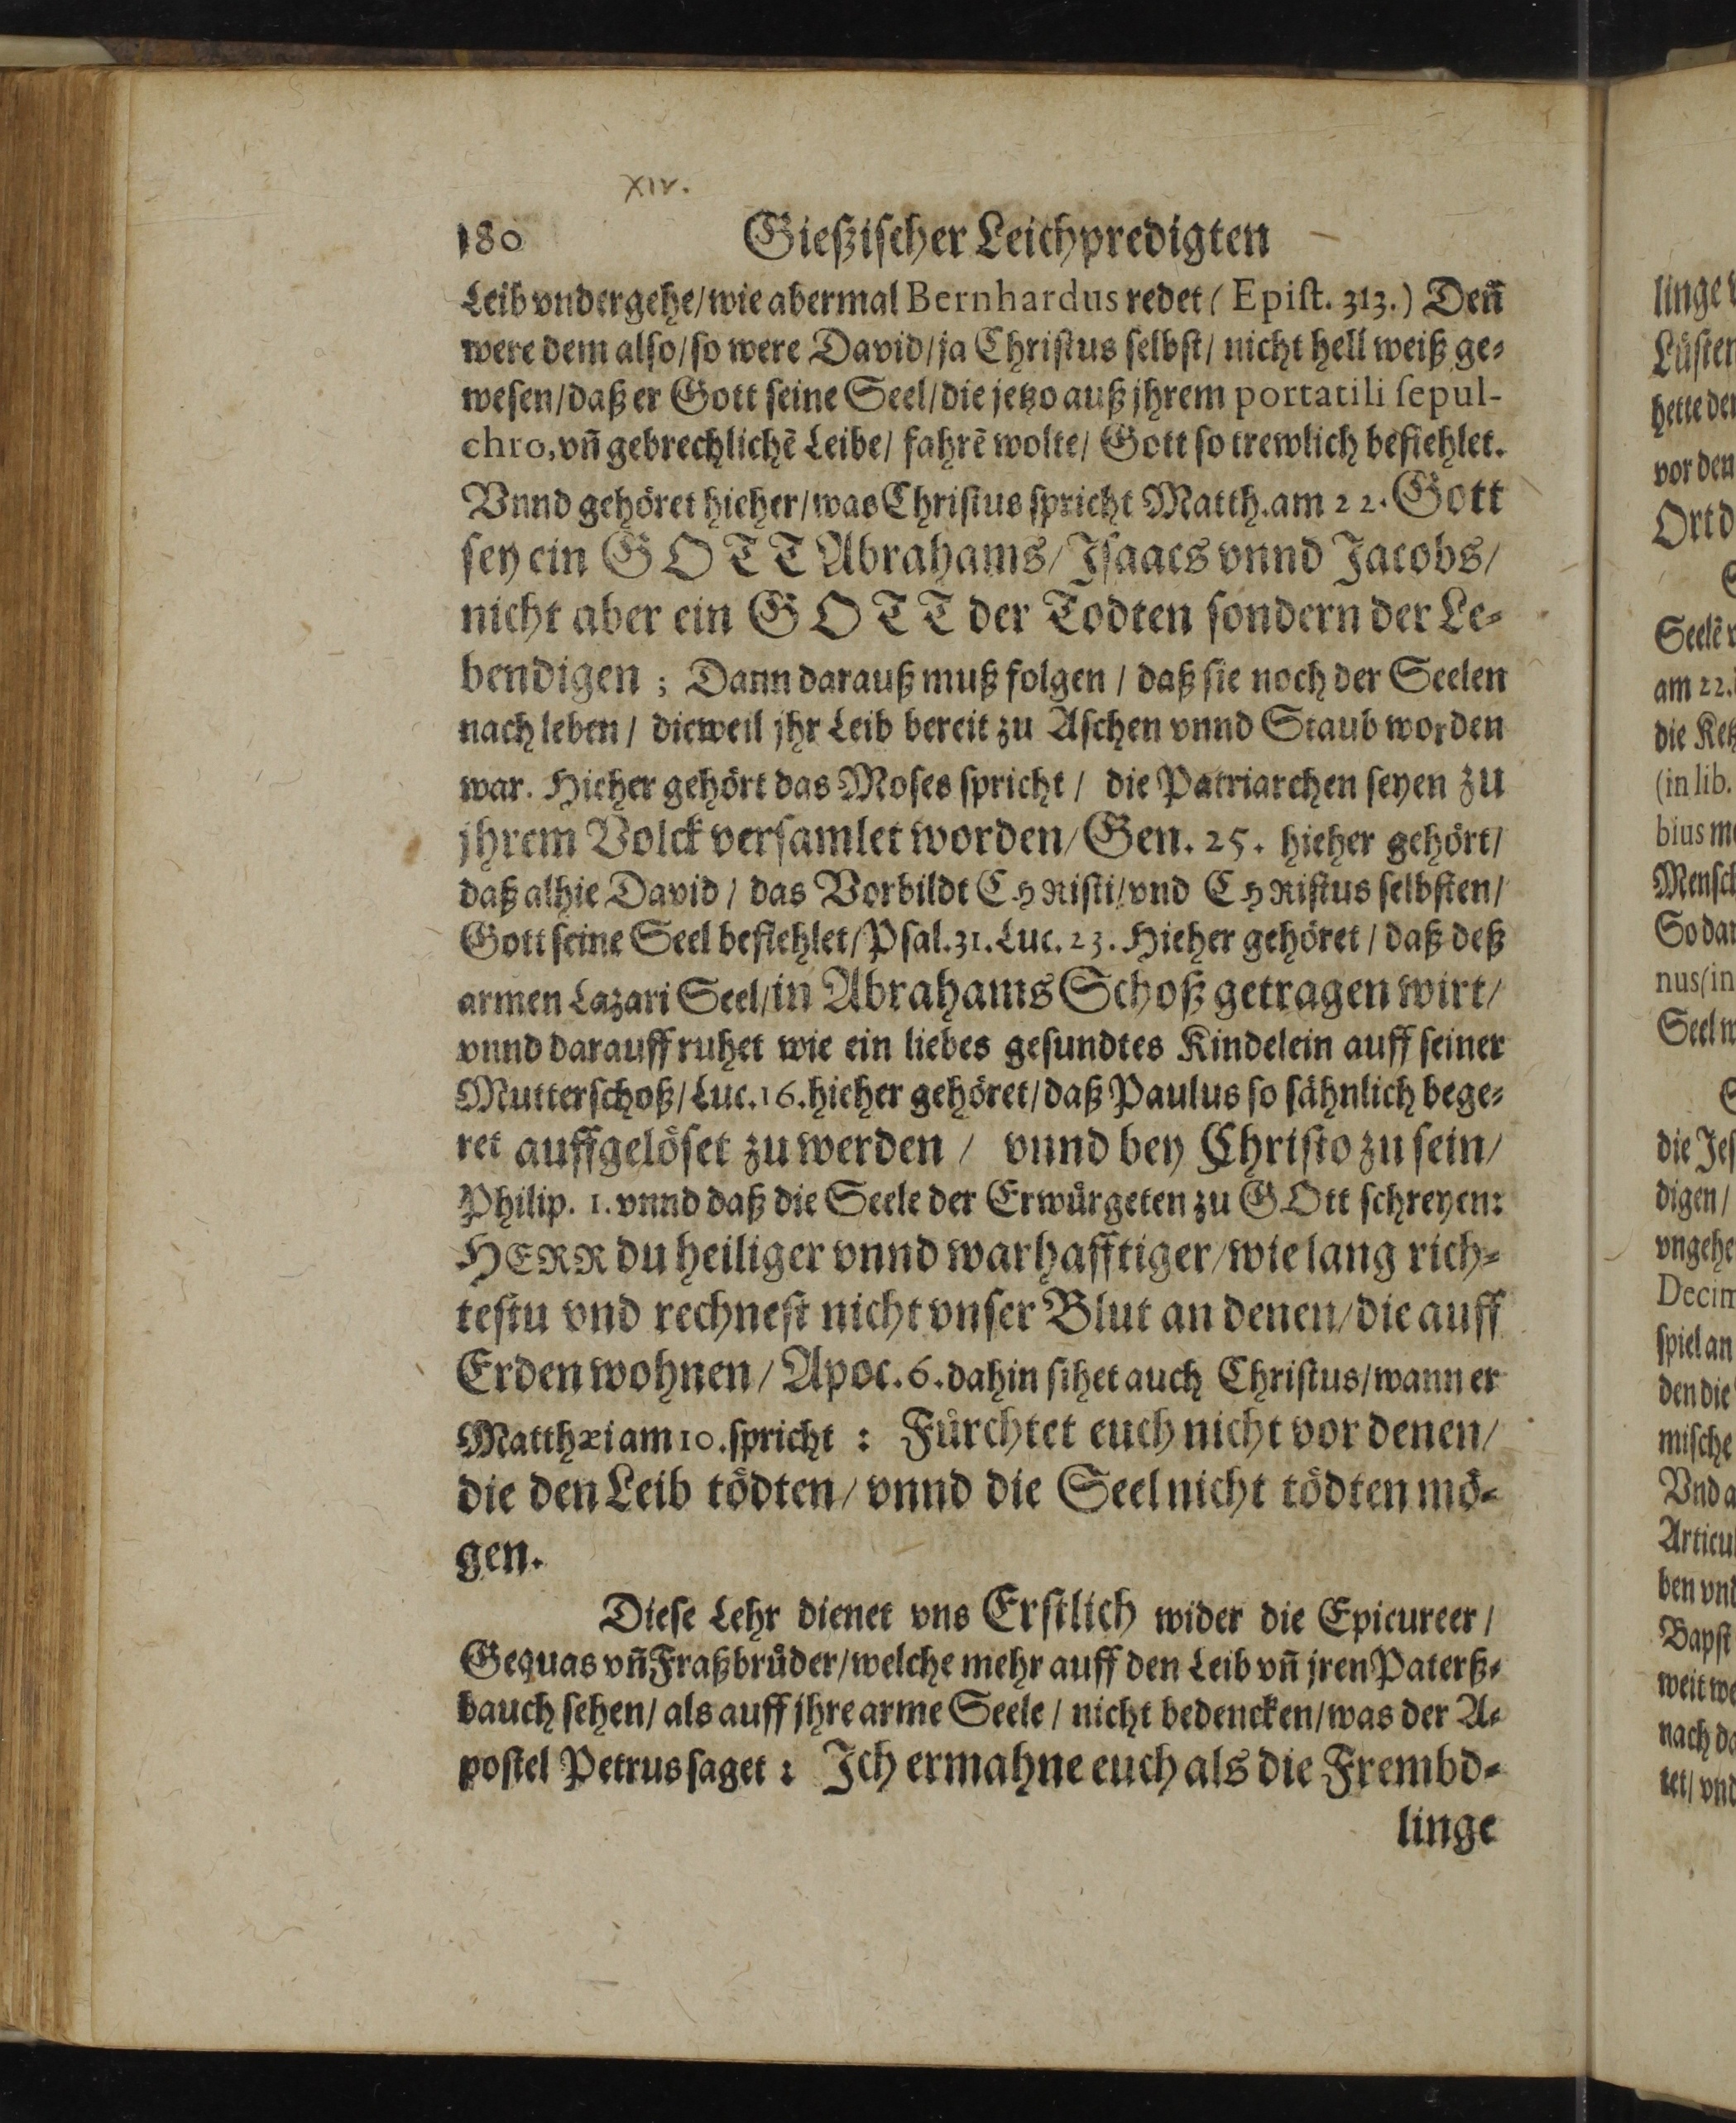 XIV.
180 Gießischer Leichpredigten
Leib vndergehe/ wie abermal Bernhardus redet (Epist. 313.) Deñ
were dem also/ so were David/ ja Christus selbst/ nicht hell weiß ge-
wesen/ daß er Gott seine Seel/ die jetzo auß jhrem portatili sepul-
chro, vñ gebrechlichẽ Leibe/ fahrẽ wolte/ Gott so trewlich befiehlet.
Vnnd gehöret hieher/ was Christus spricht Matth. am 22. Gott
sey ein GOTT Abrahams/ Isaacs vnnd Jacobs/
nicht aber ein GOTT der Todten sondern der Le-
bendigen; Dann darauß muß folgen/ daß sie noch der Seelen
nach leben/ dieweil jhr Leib bereit zu Aschen vnnd Staub worden
war. Hieher gehört das Moses spricht/ die Patriarchen seyen zu
jhrem Volck versamlet worden/ Gen. 25. hieher gehört/
daß alhie David/ das Vorbildt CHRisti/ vnd CHRistus selbsten/
Gott seine Seel befiehlet/ Psal. 31. Luc. 23. Hieher gehöret/ daß deß
armen Lazari Seel/ in Abrahams Schoß getragen wirt/
vnnd darauff ruhet wie ein liebes gesundtes Kindelein auff seiner
Mutterschoß/ Luc. 16. hieher gehöret/ daß Paulus so sähnlich bege-
ret auffgelöset zu werden/ vnnd bey Christo zu sein/
Philip. 1. vnnd daß die Seele der Erwürgeten zu GOtt schreyen:
HERR du heiliger vnnd warhafftiger/ wie lang rich-
testu vnd rechnest nicht vnser Blut an denen/ die auff
Erden wohnen/ Apoc. 6. dahin sihet auch Christus/ wann er
Matthæi am 10. spricht: Fürchtet euch nicht vor denen/
die den Leib tödten/ vnnd die Seel nicht tödten mö-
gen.
Diese Lehr dienet vns Erstlich wider die Epicureer/
Gequas vñ Fraßbrüder/ welche mehr auff den Leib vñ jren Paterß-
bauch sehen/ als auff jhre arme Seele/ nicht bedencken/ was der A-
postel Petrus saget: Ich ermahne euch als die Frembd-
linge
linge
Lüsten
hette
vor den
Ort
am 22.
(in lib.
bius
nus (in
digen/
Decim
spiel an
den die
mische
Bapst